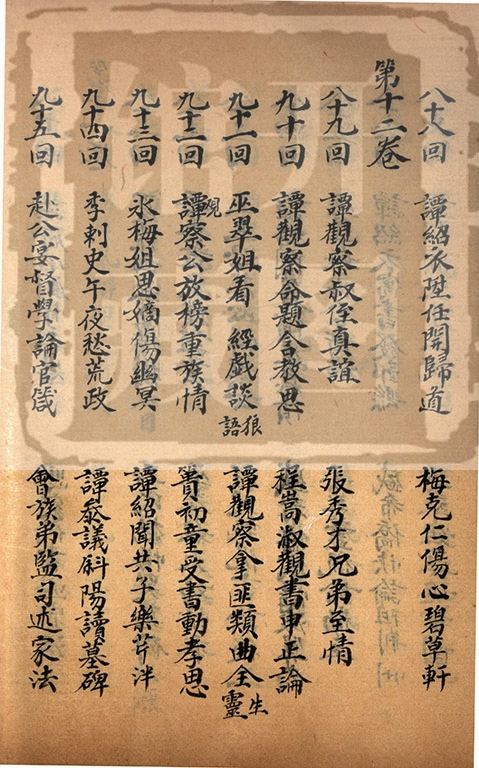 八十八回 譚紹衣陞任開歸道 梅克仁傷心碧草軒
第十二卷
八十九回 譚觀察叔侄真誼 張秀才兄弟至情
九十回 譚觀察命題含教思 程嵩淑觀書申正論
九十一回 巫翠姐看經戲談狠語 譚觀察拿匪類曲全生靈
九十二回 譚觀察公放榜重族情 簣初童受書動孝思
九十三回 氷梅姐思嫡傷幽冥 譚紹聞共子樂芹泮
九十四回 季刺史午夜愁荒政 譚叅議斜陽讀墓碑
九十五回 赴公宴督學論官箴 會族弟監司述家法